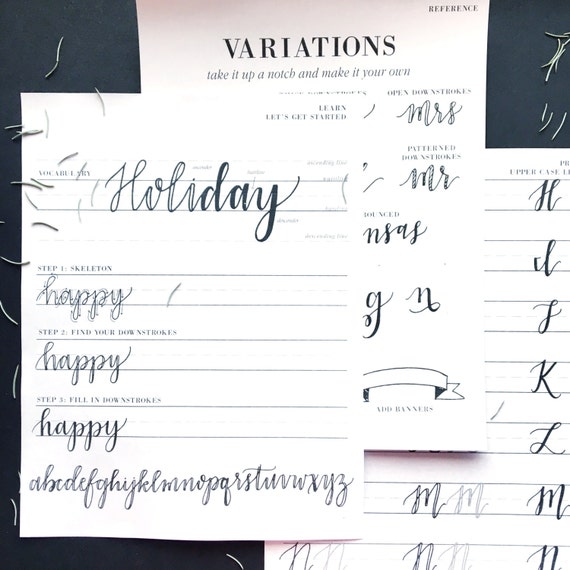 REFERENCE
VARIATIONS
take it up a notch and make it your own
OPEN DOWNSTROKES
mrs
PATTERNED
DOWNSTROKES
mr
nsas
g n
ADD BANNERS
LEARN
LET'S GET STARTED
VOCABULARY
ascender
ascending line
Holiday
descender
descending line
STEP 1: SKELETON
happy
STEP 2: FIND YOUR DOWNSTROKES
happy
STEP 3: FILL IN DOWNSTROKES
happy
abcdefghijklmnopqrstuvwxyz
UPPER CASE
H
I
J
K
L
M M M